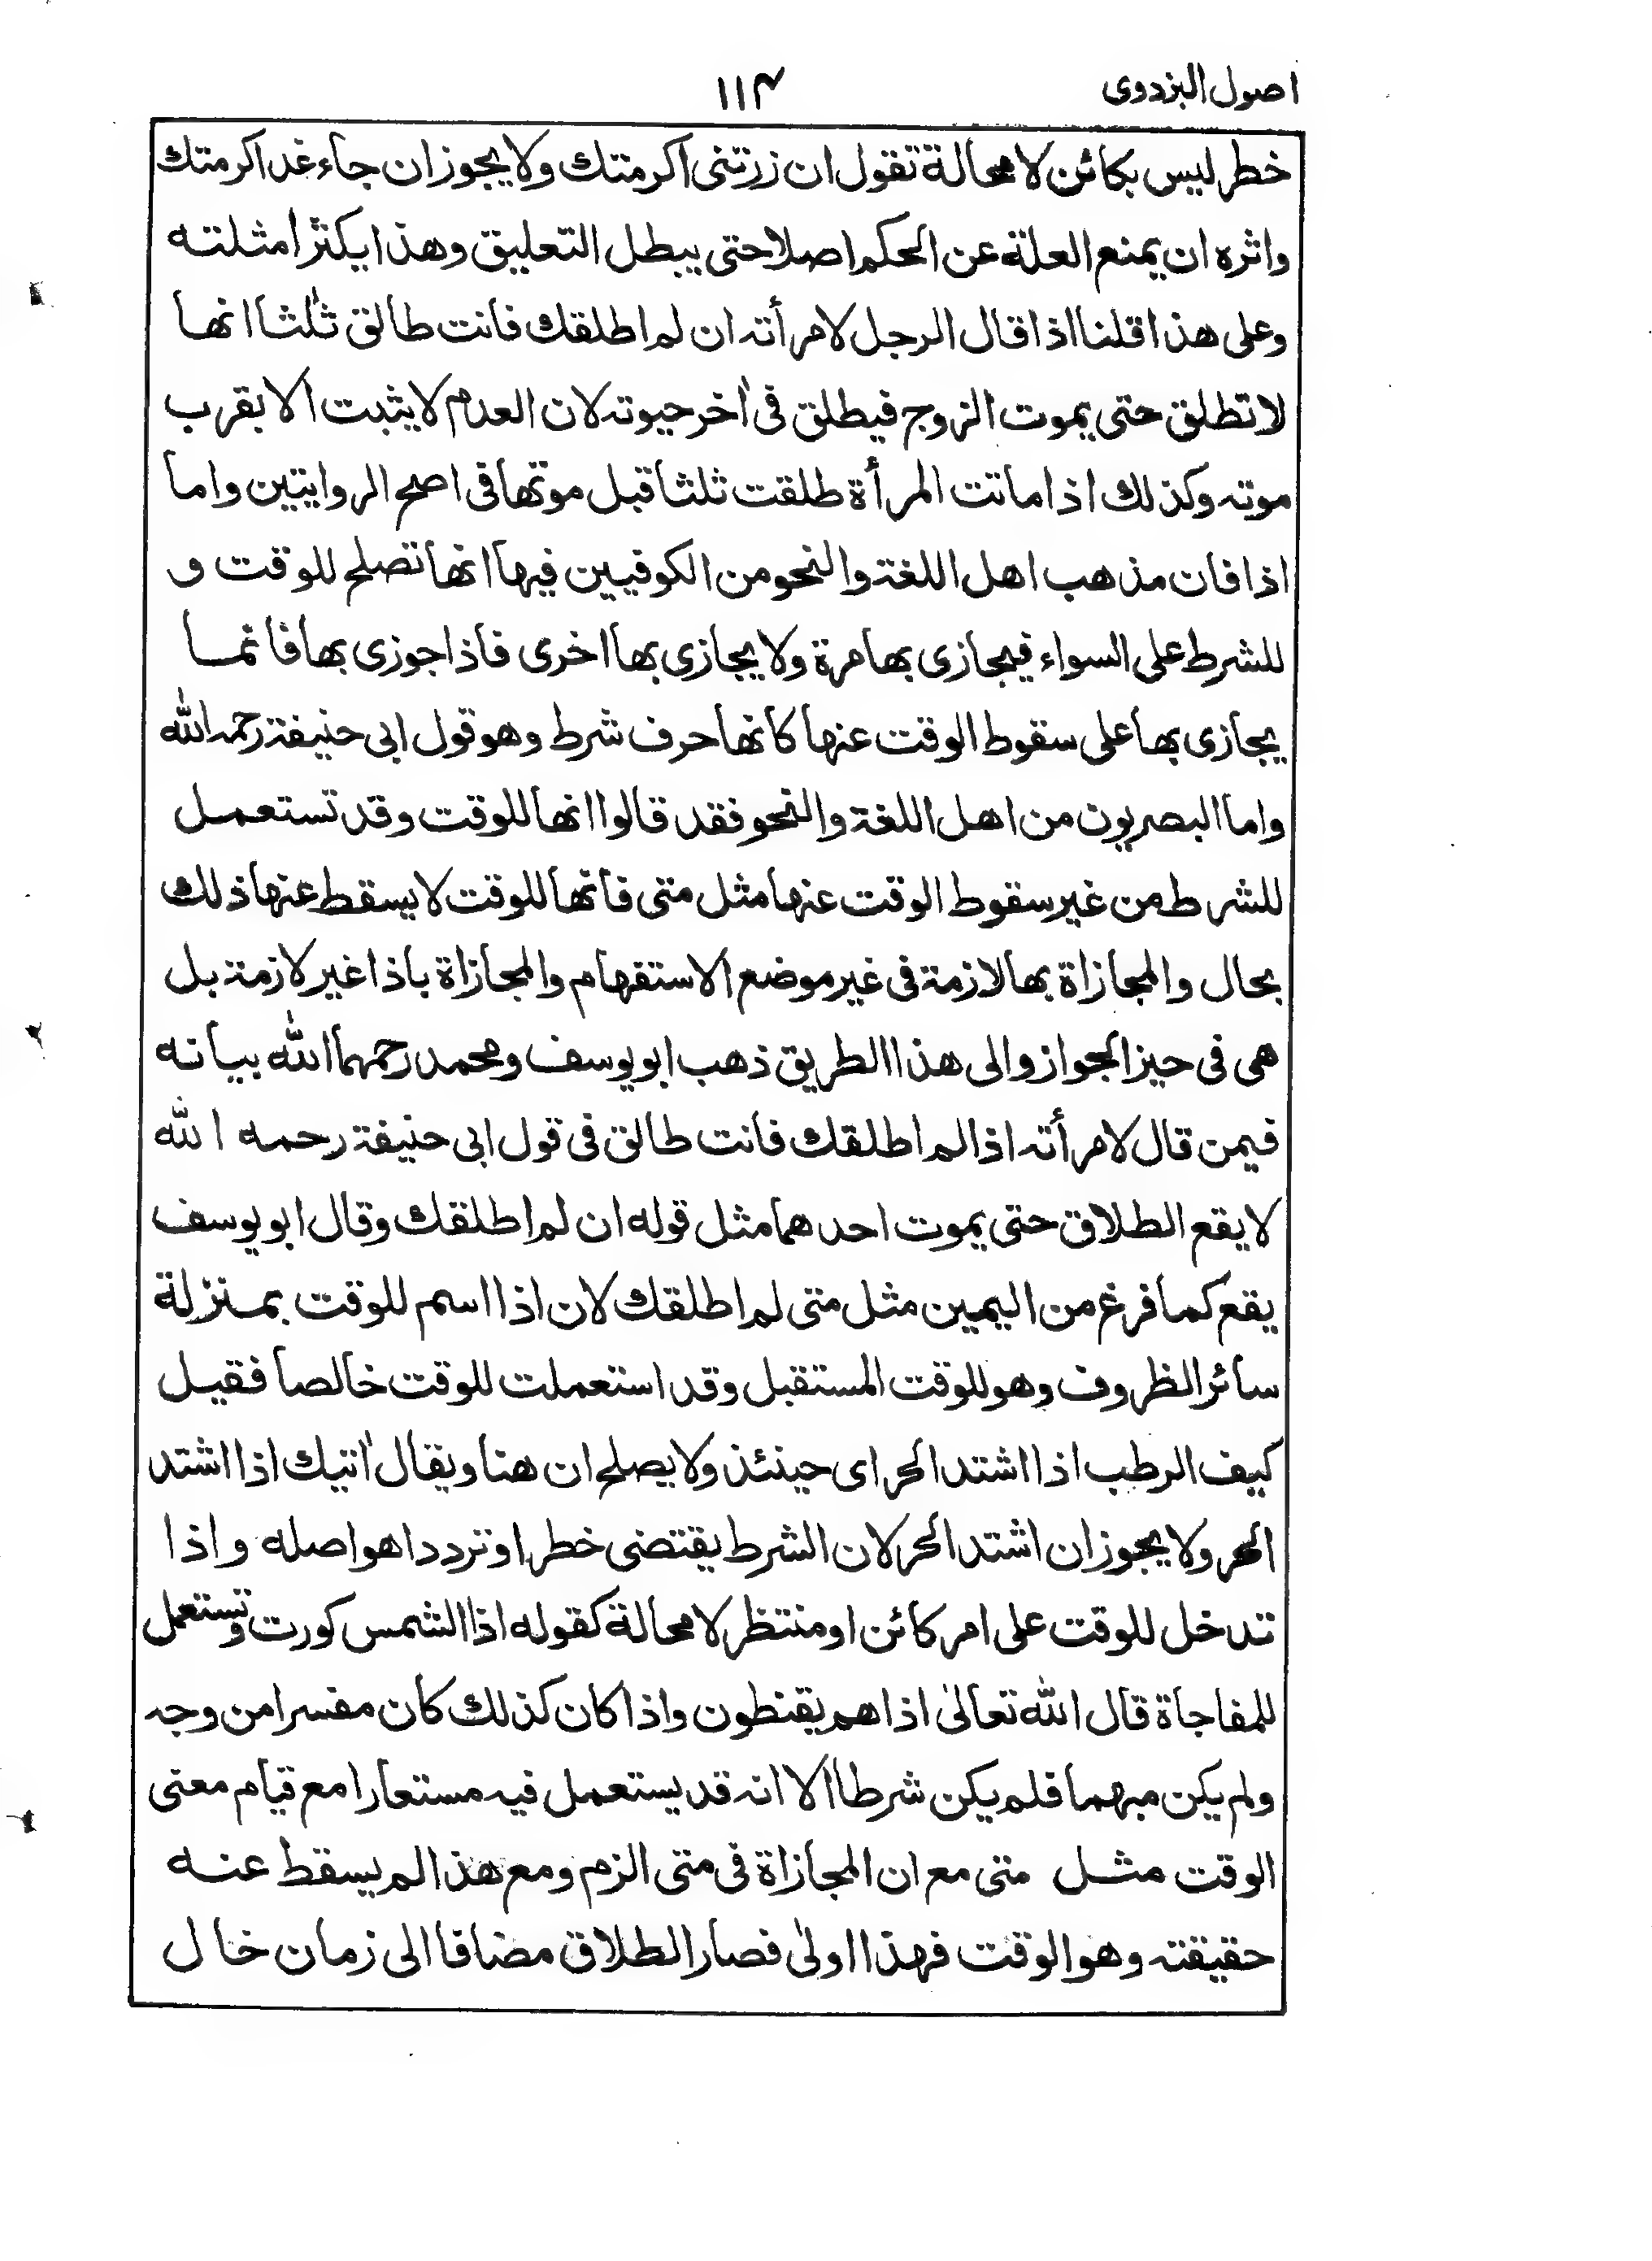 اصول البزدوی ۱۱۴
خطر ليس بكائن لا محالة تقول ان زرتنى اكرمتك ولا يجوز ان جاء غدا اكرمتك
واثره ان يمنع العلة عن الحكم اصلا حتى يبطل التعليق وهذا يكثر امثلته
وعلى هذا قلنا اذا قال الرجل لامرأته ان لم اطلقك فانت طالق ثلثا انها
لا تطلق حتى يموت الزوج فيطلق فى اٰخر حيوته لان العدم لا يثبت الا بقرب
موته وكذلك اذا ماتت المرأة طلقت ثلثا قبل موتها فى اصح الروايتين واما
اذا فان مذهب اهل اللغة والنحو من الكوفيين فيها انها تصلح للوقت و
للشرط على السواء فيجازى بها مرة ولا يجازى بها اخرى فاذا جوزى بها فانما
يجازى بها على سقوط الوقت عنها كانها حرف شرط وهو قول ابى حنيفة رحمه الله
واما البصريون من اهل اللغة والنحو فقد قالوا انها للوقت وقد تستعمل
للشرط من غير سقوط الوقت عنها مثل متى فانها للوقت لا يسقط عنها ذلك
بحال والمجازاة بها لازمة فى غير موضع الاستفهام والمجازاة باذا غير لازمة بل
هى فى حيز الجواز والى هذا الطريق ذهب ابو يوسف ومحمد رحمهما الله بيانه
فيمن قال لامرأته اذا لم اطلقك فانت طالق فى قول ابى حنيفة رحمه الله
لا يقع الطلاق حتى يموت احدهما مثل قوله ان لم اطلقك وقال ابو يوسف
يقع كما فرغ من اليمين مثل متى لم اطلقك لان اذا اسم للوقت بمنزلة
سائر الظروف وهو للوقت المستقبل وقد استعملت للوقت خالصا فقيل
كيف الرطب اذا اشتد الحر اى حينئذ ولا يصلح ان هنا ويقال اٰتيك اذا اشتد
الحر ولا يجوز ان اشتد الحر لان الشرط يقتضى خطرا وترددا هو اصله واذا
تدخل للوقت على امر كائن او منتظر لا محالة كقوله اذا الشمس كورت وتستعمل
للمفاجاة قال الله تعالىٰ اذا هم يقنطون واذا كان كذلك كان مفسرا من وجه
ولم يكن مبهما فلم يكن شرطا الا انه قد يستعمل فيه مستعارا مع قيام معنى
الوقت مثل متى مع ان المجازاة فى متى الزم ومع هذا لم يسقط عنه
حقيقته وهو الوقت فهذا اولىٰ فصار الطلاق مضافا الى زمان خال